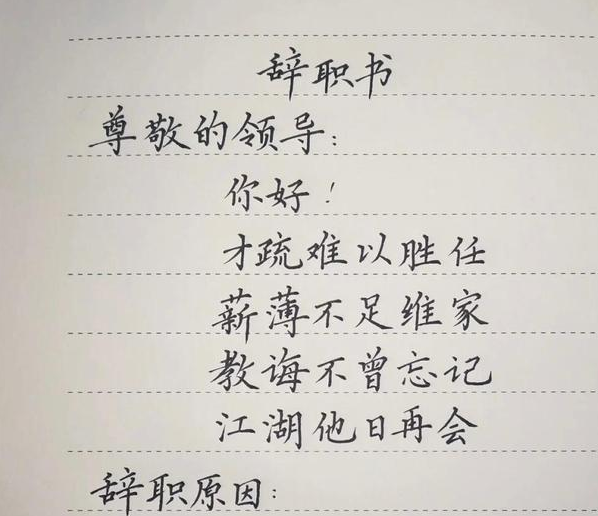 辞职书
尊敬的领导:
你好!
才疏难以胜任
薪薄不足维家
教诲不曾忘记
江湖他日再会
辞职原因: